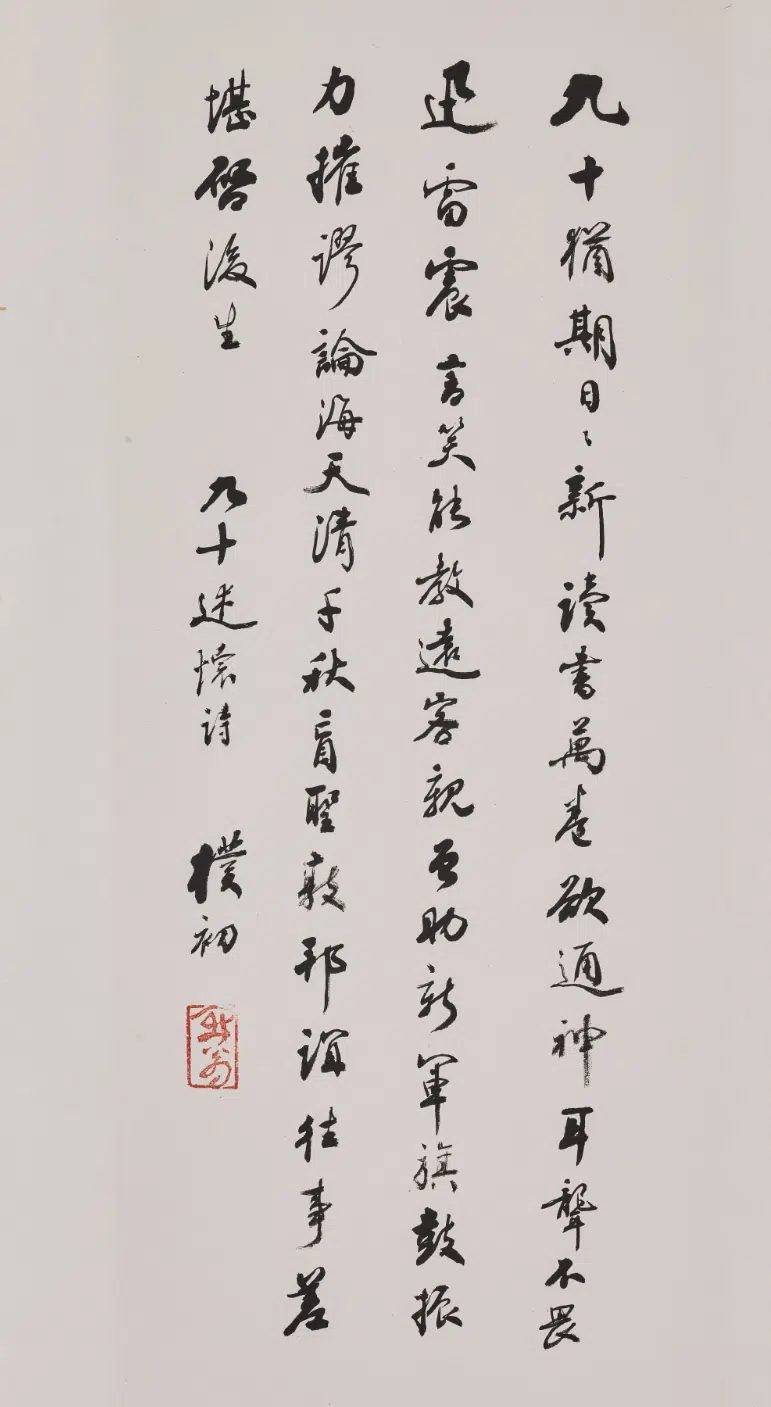 九十猶期日〻新读書萬卷欲通神耳聋不畏
迅雷震言笑能教遠客親曾助新軍旗鼓振
力摧謬論海天清千秋盲聖敦邦谊往事差
堪啓後生 九十述懷诗 樸初